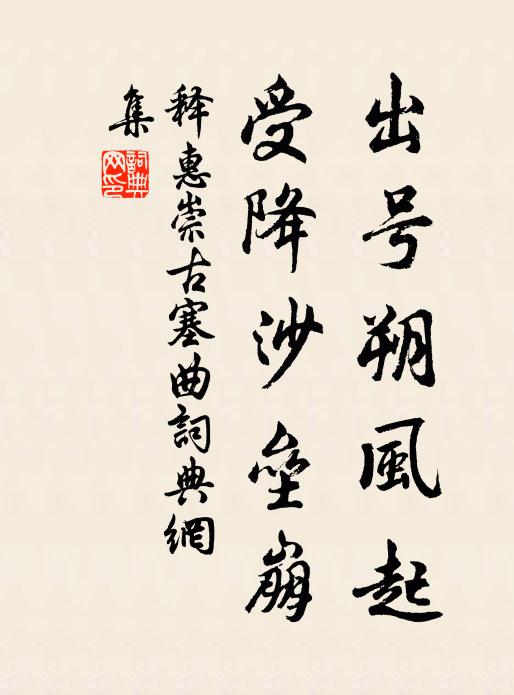 出号朔風起
受降沙垒崩
释惠崇古塞曲詞典網
集
詞典
网印